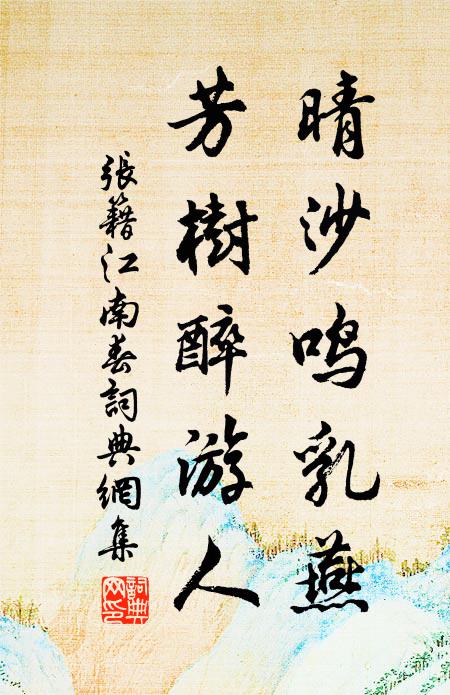 晴沙鸣乳燕
芳樹醉游人
張籍江南春詞典網集
詞典網印